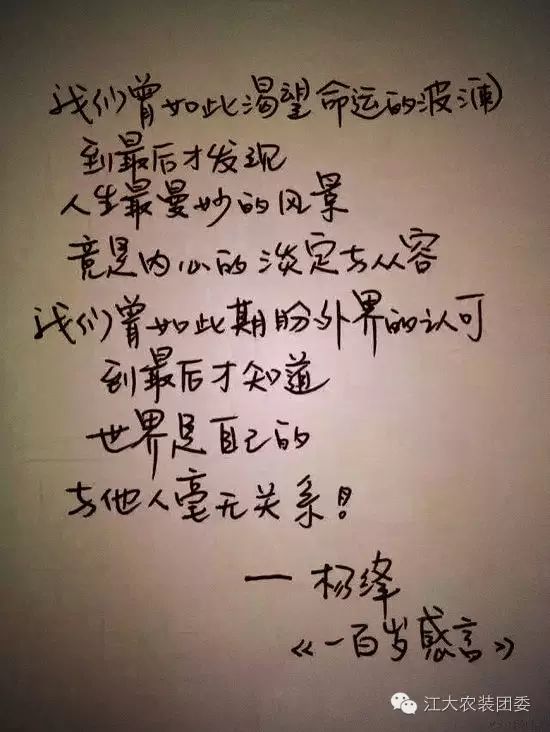 我们曾如此渴望命运的波澜
到最后才发现
人生最曼妙的风景
竟是内心的淡定与从容
我们曾如此期盼外界的认可
到最后才知道
世界是自己的
与他人毫无关系！
— 杨绛
《一百岁感言》
江大农装团委